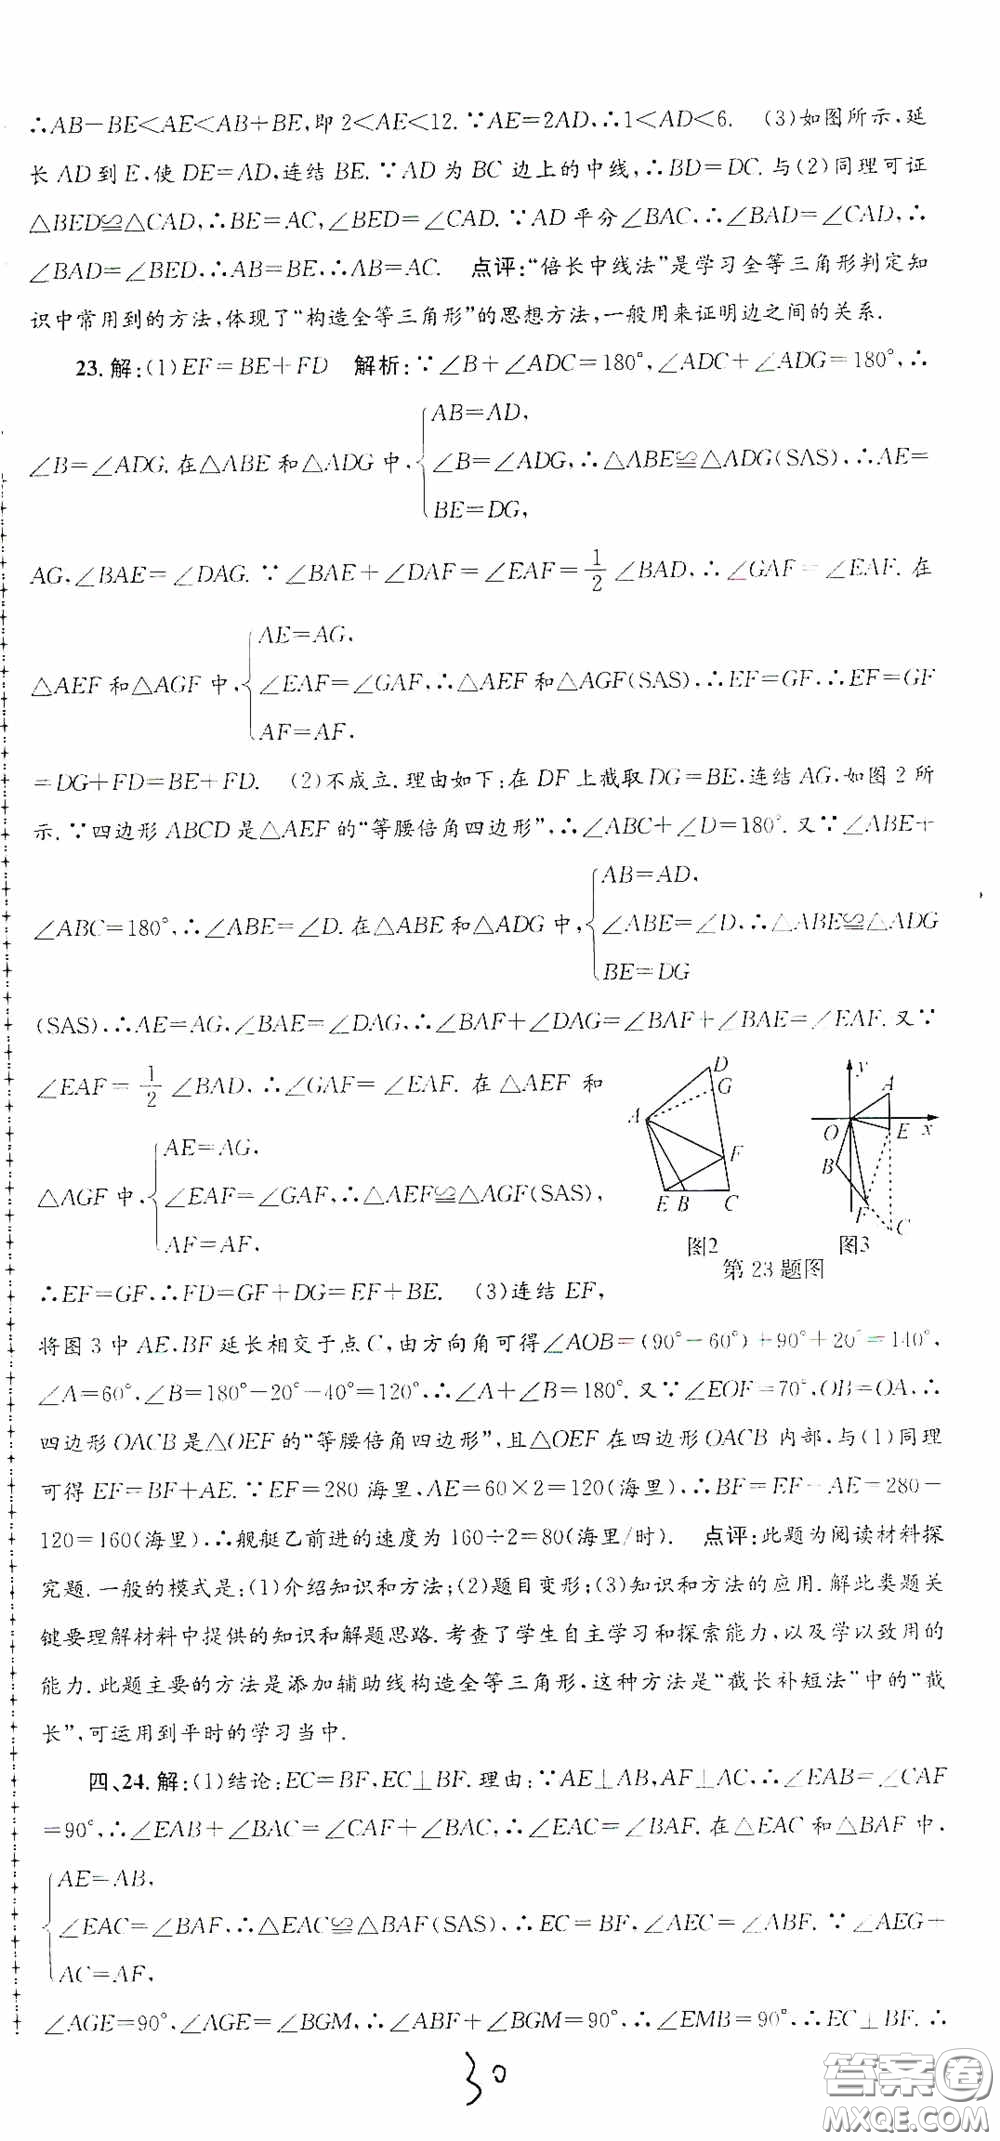 ∴AB−BE<AE<AB+BE,即 2<AE<12.∵AE=2AD,∴1<AD<6. (3)如图所示,延
长 AD 到 E,使 DE=AD,连结 BE.∵AD 为 BC 边上的中线,∴BD=DC.与(2)同理可证
△BED≌△CAD,∴BE=AC,∠BED=∠CAD.∵AD 平分∠BAC,∴∠BAD=∠CAD,∴
∠BAD=∠BED,∴AB=BE,∴AB=AC. 点评:“倍长中线法”是学习全等三角形判定知
识中常用到的方法,体现了“构造全等三角形”的思想方法,一般用来证明边之间的关系.
23.解:(1)EF=BE+FD 解析:∵∠B+∠ADC=180°,∠ADC+∠ADG=180°,∴
AB=AD,
∠B=∠ADG.在△ABE 和△ADG 中,{∠B=∠ADG,∴△ABE≌△ADG(SAS),∴AE=
BE=DG,
AG,∠BAE=∠DAG.∵∠BAE+∠DAF=∠EAF=1/2∠BAD,∴∠GAF=∠EAF.在
AE=AG,
△AEF 和△AGF 中,{∠EAF=∠GAF,∴△AEF 和△AGF(SAS),∴EF=GF,∴EF=GF
AF=AF,
=DG+FD=BE+FD. (2)不成立.理由如下:在 DF 上截取 DG=BE,连结 AG,如图 2 所
示.∵四边形 ABCD 是△AEF 的“等腰倍角四边形”,∴∠ABC+∠D=180°.又∵∠ABE+
AB=AD,
∠ABC=180°,∴∠ABE=∠D.在△ABE 和△ADG 中,{∠ABE=∠D,∴△ABE≌△ADG
BE=DG
(SAS),∴AE=AG,∠BAE=∠DAG,∴∠BAF+∠DAG=∠BAF+∠BAE=∠EAF.又∵
∠EAF=1/2∠BAD,∴∠GAF=∠EAF.在△AEF 和
AE=AG,
△AGF 中,{∠EAF=∠GAF,∴△AEF≌△AGF(SAS),
AF=AF,
∴EF=GF,∴FD=GF+DG=EF+BE. (3)连结 EF,
D
G
A
F
E B C
图2
y
A
O E x
B
F
C
图3
第 23 题图
将图 3 中 AE、BF 延长相交于点 C,由方向角可得∠AOB=(90°−60°)+90°+20°=140°,
∠A=60°,∠B=180°−20°−40°=120°,∴∠A+∠B=180°.又∵∠EOF=70°,OB=OA,∴
四边形 OACB 是△OEF 的“等腰倍角四边形”,且△OEF 在四边形 OACB 内部,与(1)同理
可得 EF=BF+AE.∵EF=280 海里,AE=60×2=120(海里),∴BF=EF−AE=280−
120=160(海里),∴舰艇乙前进的速度为 160÷2=80(海里/时). 点评:此题为阅读材料探
究题.一般的模式是:(1)介绍知识和方法;(2)题目变形;(3)知识和方法的应用.解此类题关
键要理解材料中提供的知识和解题思路.考查了学生自主学习和探索能力,以及学以致用的
能力.此题主要的方法是添加辅助线构造全等三角形,这种方法是“截长补短法”中的“截
长”,可运用到平时的学习当中.
四、24.解:(1)结论:EC=BF,EC⊥BF.理由:∵AE⊥AB,AF⊥AC,∴∠EAB=∠CAF
=90°,∴∠EAB+∠BAC=∠CAF+∠BAC,∴∠EAC=∠BAF.在△EAC 和△BAF 中,
AE=AB,
{∠EAC=∠BAF,∴△EAC≌△BAF(SAS),∴EC=BF,∠AEC=∠ABF.∵∠AEG+
AC=AF,
∠AGE=90°,∠AGE=∠BGM,∴∠ABF+∠BGM=90°,∴∠EMB=90°,∴EC⊥BF.∴
30
答案卷
MXQE.COM